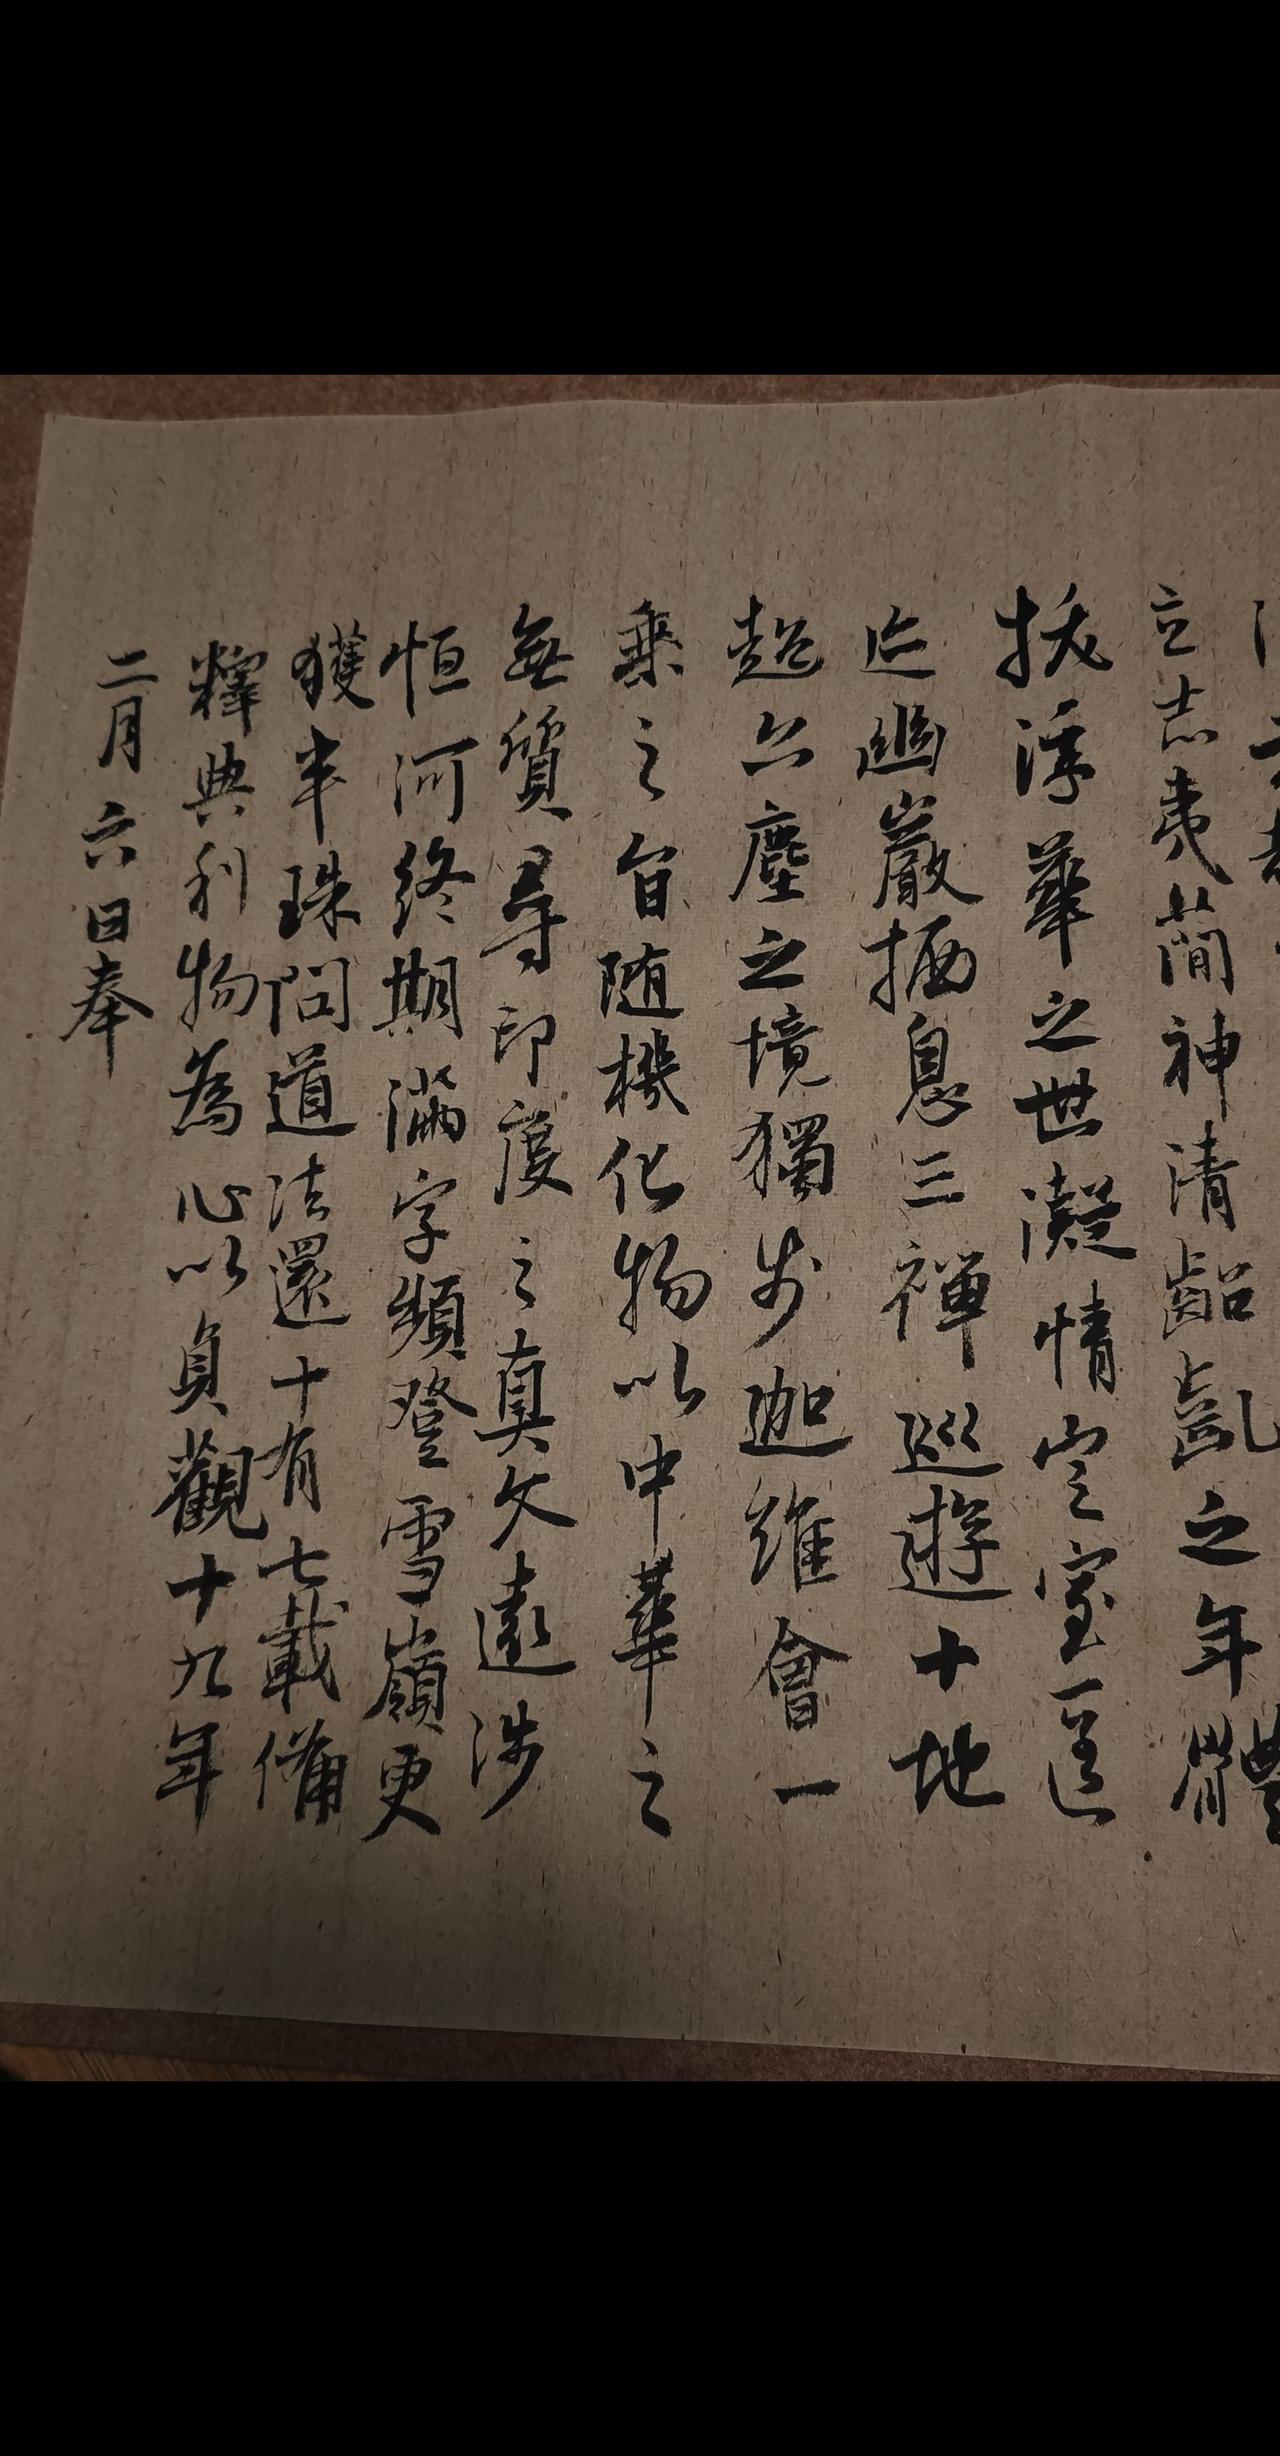 立志夷簡神清齠齔之年體
拔浮華之世凝情定室匿
迹幽巖栖息三禪巡遊十地
超六塵之境獨步迦維會一
乘之旨随機化物以中華之
無質尋印度之真文遠涉
恒河終期滿字頻登雪嶺更
獲半珠問道法還十有七載備
釋典利物為心以貞觀十九年
二月六日奉